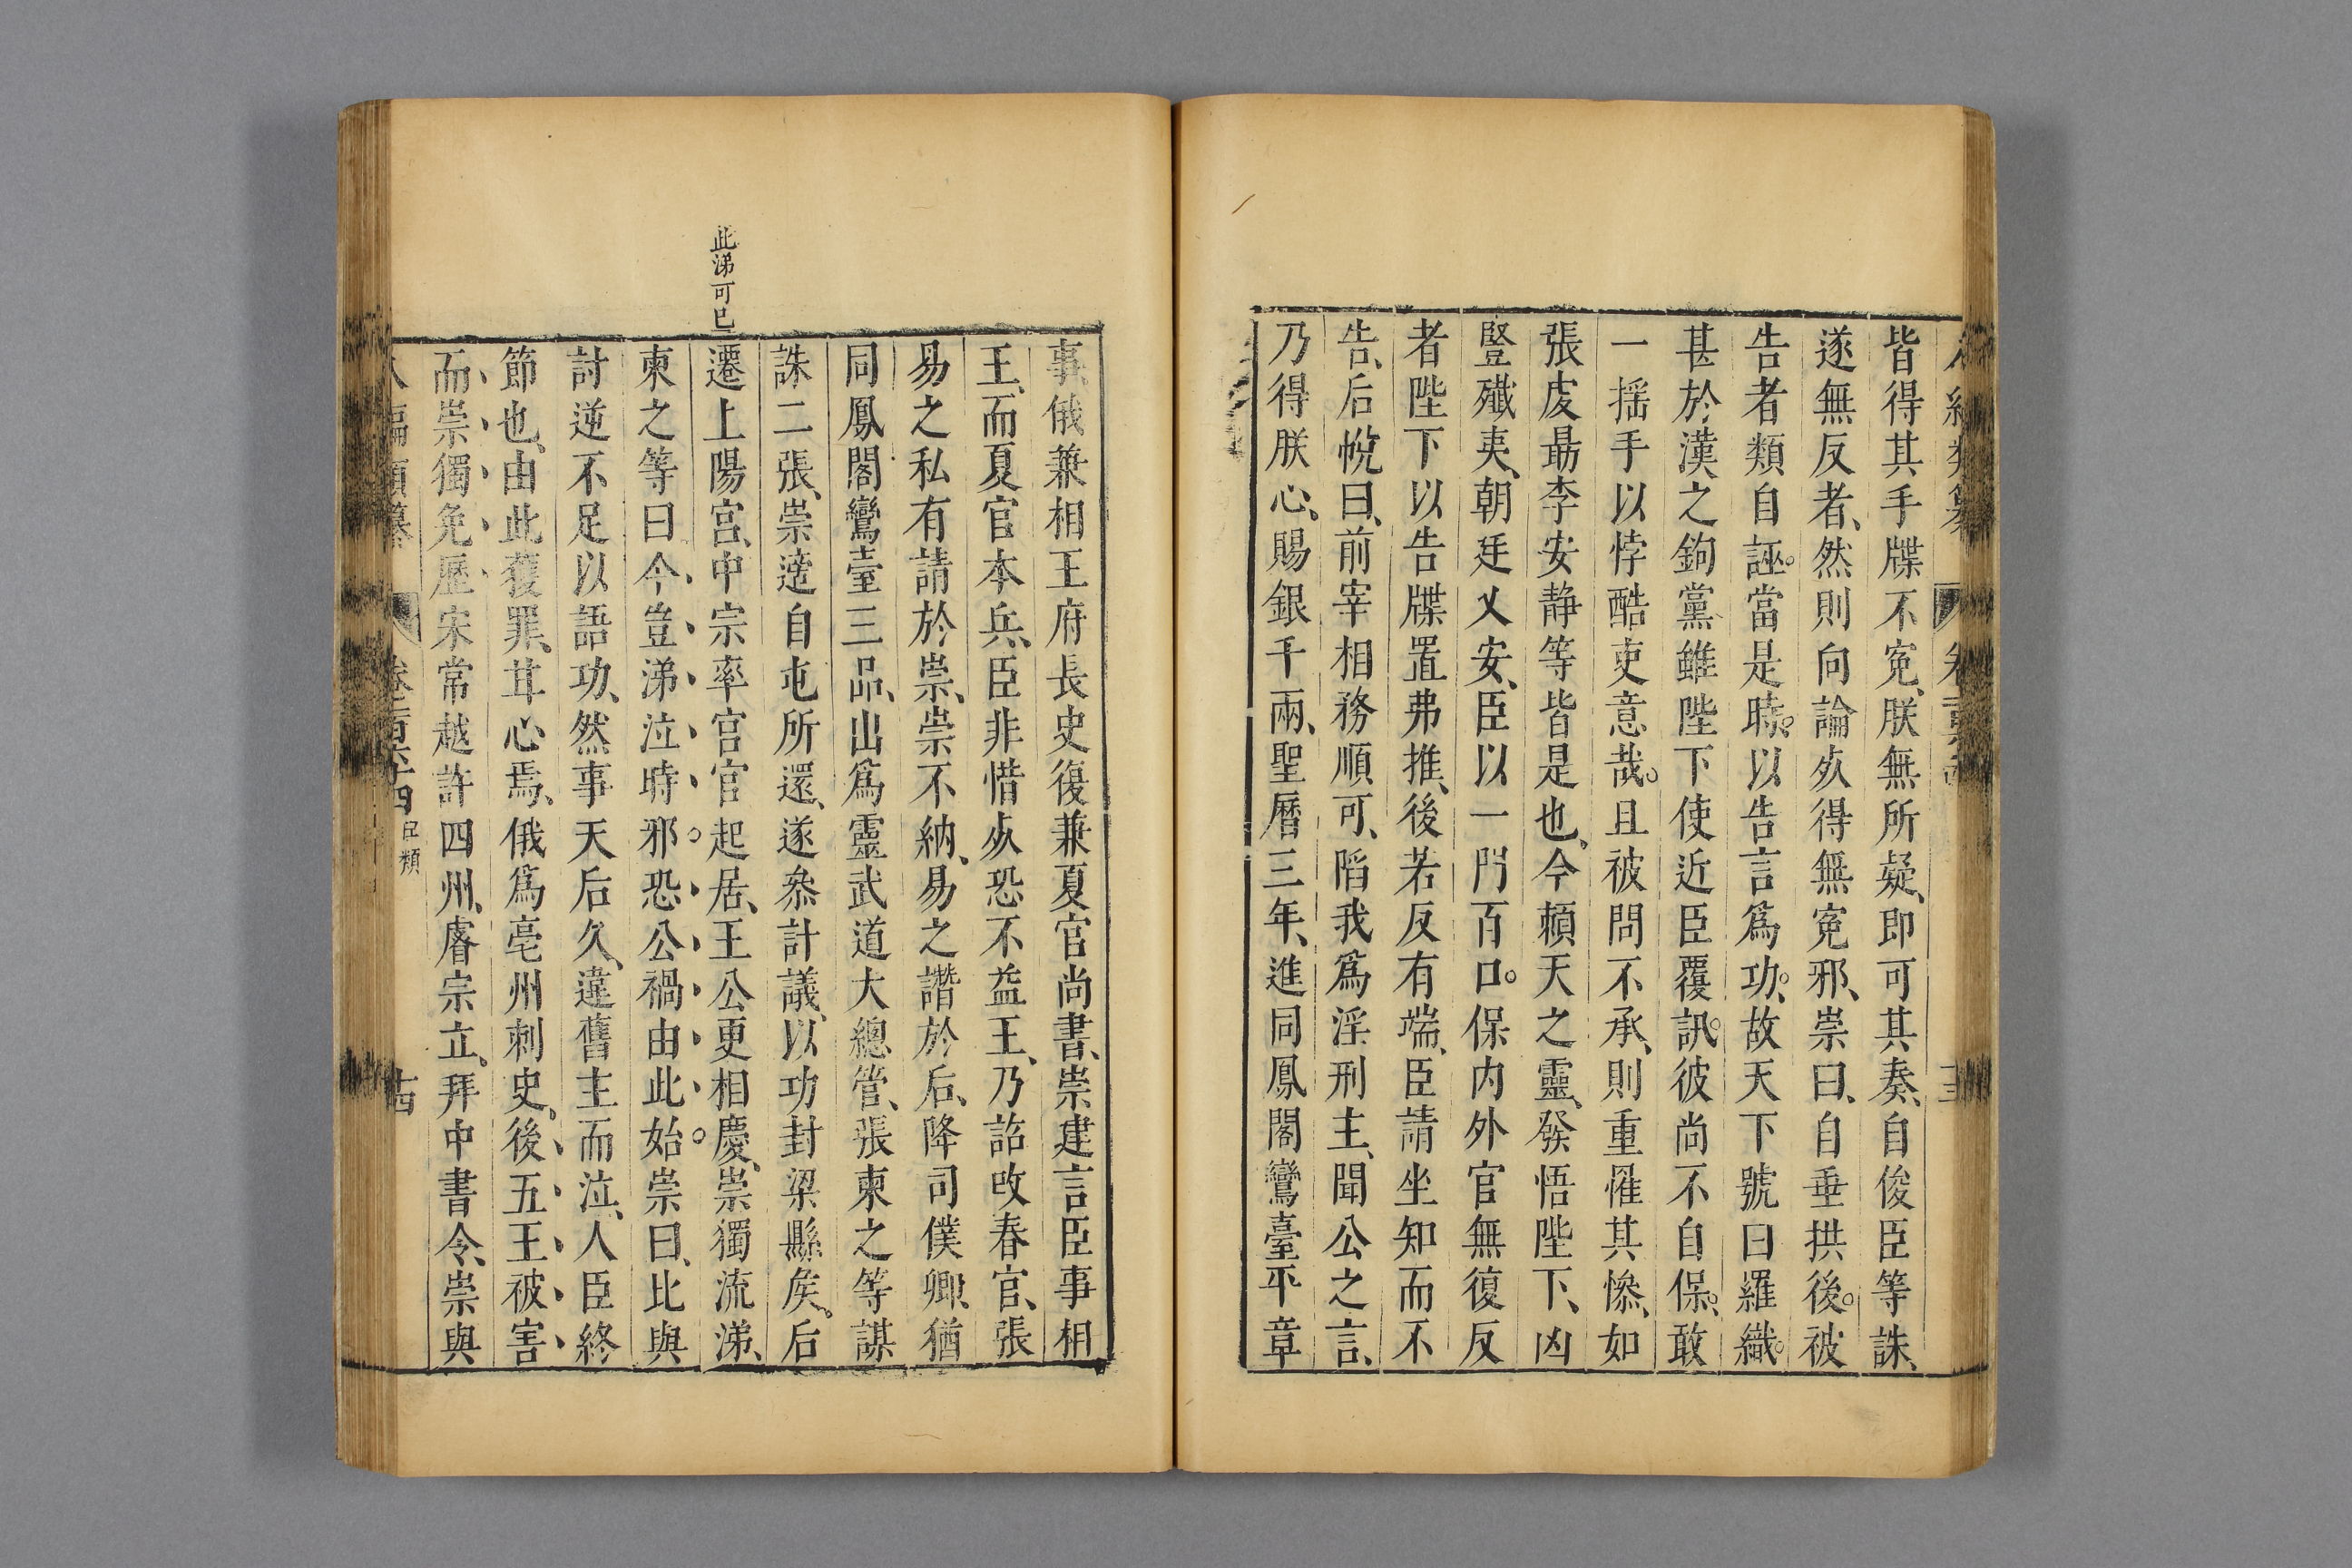 皆得其手牒不寃、朕無所疑、即可其奏、自俊臣等誅、
遂無反者、然則向論死得無寃邪、崇曰、自垂拱後。被
告者類自誣。當是時。以告言爲功。故天下號曰羅織。
甚於漢之鉤黨雖陛下使近臣覆訊。彼尚不自保。敢
一搖手以悖酷吏意哉。且被問不承、則重罹其慘、如
張虔勗李安静等皆是也、今賴天之靈、發悟陛下、凶
豎殲夷、朝廷乂安、臣以一門百口。保内外官無復反
者陛下以告牒置弗推、後若反有端、臣請坐知而不
告、后悅曰、前宰相務順可、陷我爲淫刑主、聞公之言、
乃得朕心、賜銀千兩、聖曆三年、進同鳳閣鸞臺平章
事、俄兼相王府長史復兼夏官尚書、崇建言臣事相
王、而夏官本兵、臣非惜死恐不益王、乃詔改春官、張
易之私有請於崇、崇不納、易之譖於后、降司僕卿、猶
同鳳閣鸞臺三品、出爲靈武道大總管、張柬之等謀
誅二張、崇適自屯所還、遂叅計議、以功封梁縣矦。后
此涕可已
遷上陽宫、中宗率官官起居、王公更相慶、崇獨流涕、
柬之等曰今豈涕泣時邪。恐公禍由此始。崇曰、比與
討逆不足以語功、然事天后久、違舊主而泣、人臣終
節也、由此獲罪、甘心焉、俄爲亳州刺史、後五王被害
而崇獨免歷宋常越許四州、睿宗立、拜中書令、崇與
卷二百六十四 臣類 十四